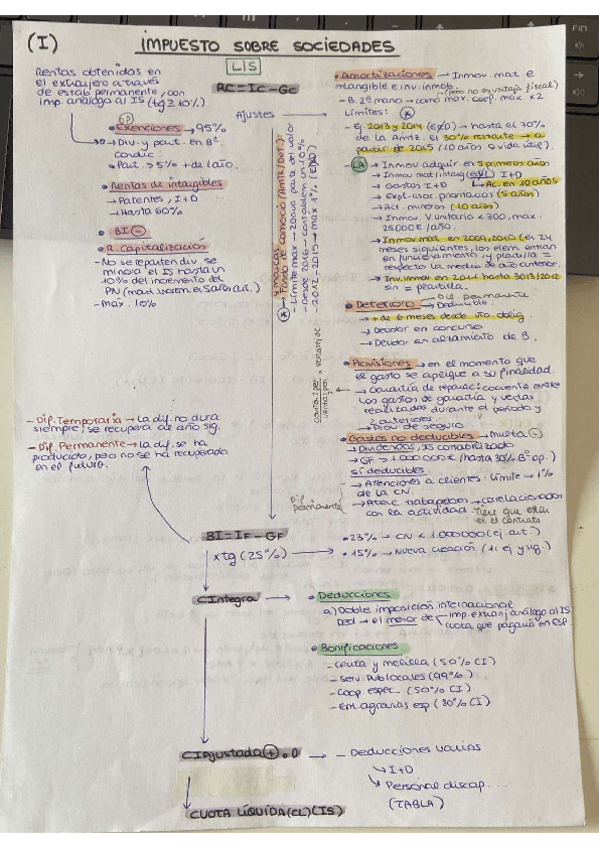 (I)
IMPUESTO SOBRE SOCIEDADES
LIS
RC=IC-GC
Ajustes
Rentas obtenidas en
el extranjero a través
de estab permanente, con
imp. análogo al IS (tg≥10%)
DP
• Exenciones → 95%
→ Div. y part. en Bº
Condic:
• Part. > 5% + de 1 año.
• Rentas de intangibles
→ Patentes, I+D
→ Hasta 60%
• BI (-)
• R. Capitalización
- No se reparten div se
minora el IS hasta un
10% del incremento de
PN
- max. 10%
y marcas
→ Fondo de comercio (Amtz/Det.):
- Límite max → 20ava parte del valor
- Desde 2016 → contablem en 10%
- 2012-2015 → max 1% (ERD)
- Dif. Temporaria → La dif. no dura
siempre, se recupera al año sig.
- Dif. Permanente → La dif. se ha
producido, pero no se ha recuperado
en el futuro.
• Amortizaciones → Inmov. mat e
intangible e inv. inmob.
(pero no es ventaja fiscal)
- B. 2ª mano → como max. coef. max x2
Límites: *
- Ej 2013 y 2014 (ERD) → hasta el 70%
de la Amtz. El 30% restante → a
partir de 2015 (10 años o vida útil).
LA → Inmov adquir en 5 primeros años
→ Inmov mat/intang (edif) I+D
→ Gastos I+D → Ac. en 10 años
→ Expl. asoc. prioritarias (5 años)
→ Act. mineras (10 años)
→ Inmov. V unitario <300, max.
25000€/año.
→ Inmov mat en 2009, 2010 (es 24
meses siguientes, los elem entran
en funcionamiento y plantilla =
respecto la media de año anterior.
→ Inv. inmov en 2011 hasta 30/3/2012
sin = plantilla.
• Deterioro → Dif. permanente
→ Deducible:
→ + de 6 meses desde vto. oblig
→ Deudor en concurso
→ Deudor en alzamiento de B.
• Provisiones → en el momento que
el gasto se aplique a su finalidad.
→ Garantía de reparac: cociente entre
los gastos de garantía y ventas
realizadas durante el periodo y
2 anteriores.
→ Prov. de seguro
• Gastos no deducibles → Multa (-)
→ Dividendos, IS contabilizado
→ GF > 1.000.000€ (hasta 30% Bº op.)
Sí deducibles:
→ Atenciones a clientes: límite → 1%
de la CN.
→ Atenc. trabajadores → correlacionados
con la actividad Tiene que estar
en el contrato
Dif
permanente
BI = IF - GF
x tg (25%)
• 23% → CN < 1.000.000 (ej. ant.)
• 15% → Nueva creación (1º ej y sig.)
CÍntegra
• Deducciones
a) Doble imposición internacional
Ded → el menor de imp. extranj análogo al IS
cuota que pagaría en ESP.
• Bonificaciones
- Ceuta y Melilla (50% CI)
- Serv. Pub locales (99%)
- Coop. espec. (50% CI)
- Ent. agrarias esp (30% CI)
CI Ajustada (+) o 0
- Deducciones varias
I+D
Personal discap...
(TABLA)
CUOTA LÍQUIDA (CL) (IS)